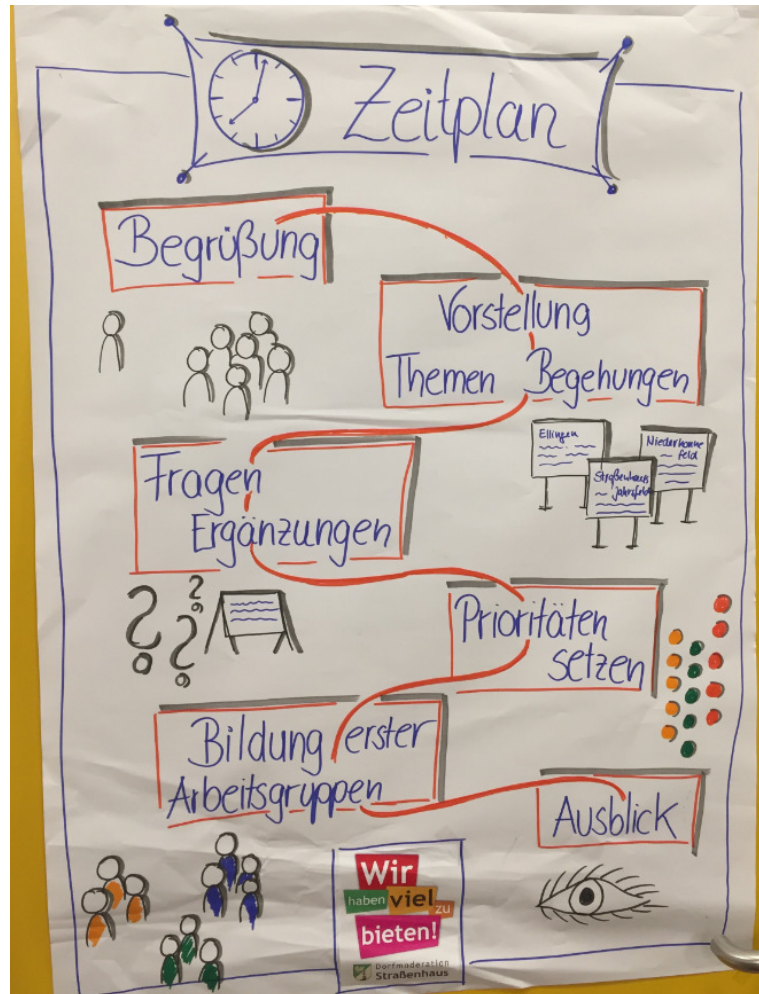 Zeitplan
Begrüßung
Vorstellung
Themen Begehungen
Ellingen
Niederhonne
feld
Straßenhaus
Jahrsfeld
Fragen
Ergänzungen
Prioritäten
setzen
Bildung erster
Arbeitsgruppen
Ausblick
Wir
haben viel zu
bieten!
Dorfmoderation
Straßenhaus